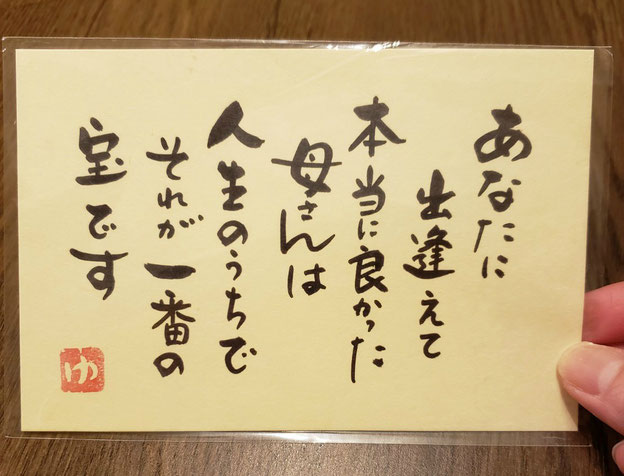 あなたに
出逢えて
本当に良かった
母さんは
人生のうちで
それが一番の
宝です
ゆ